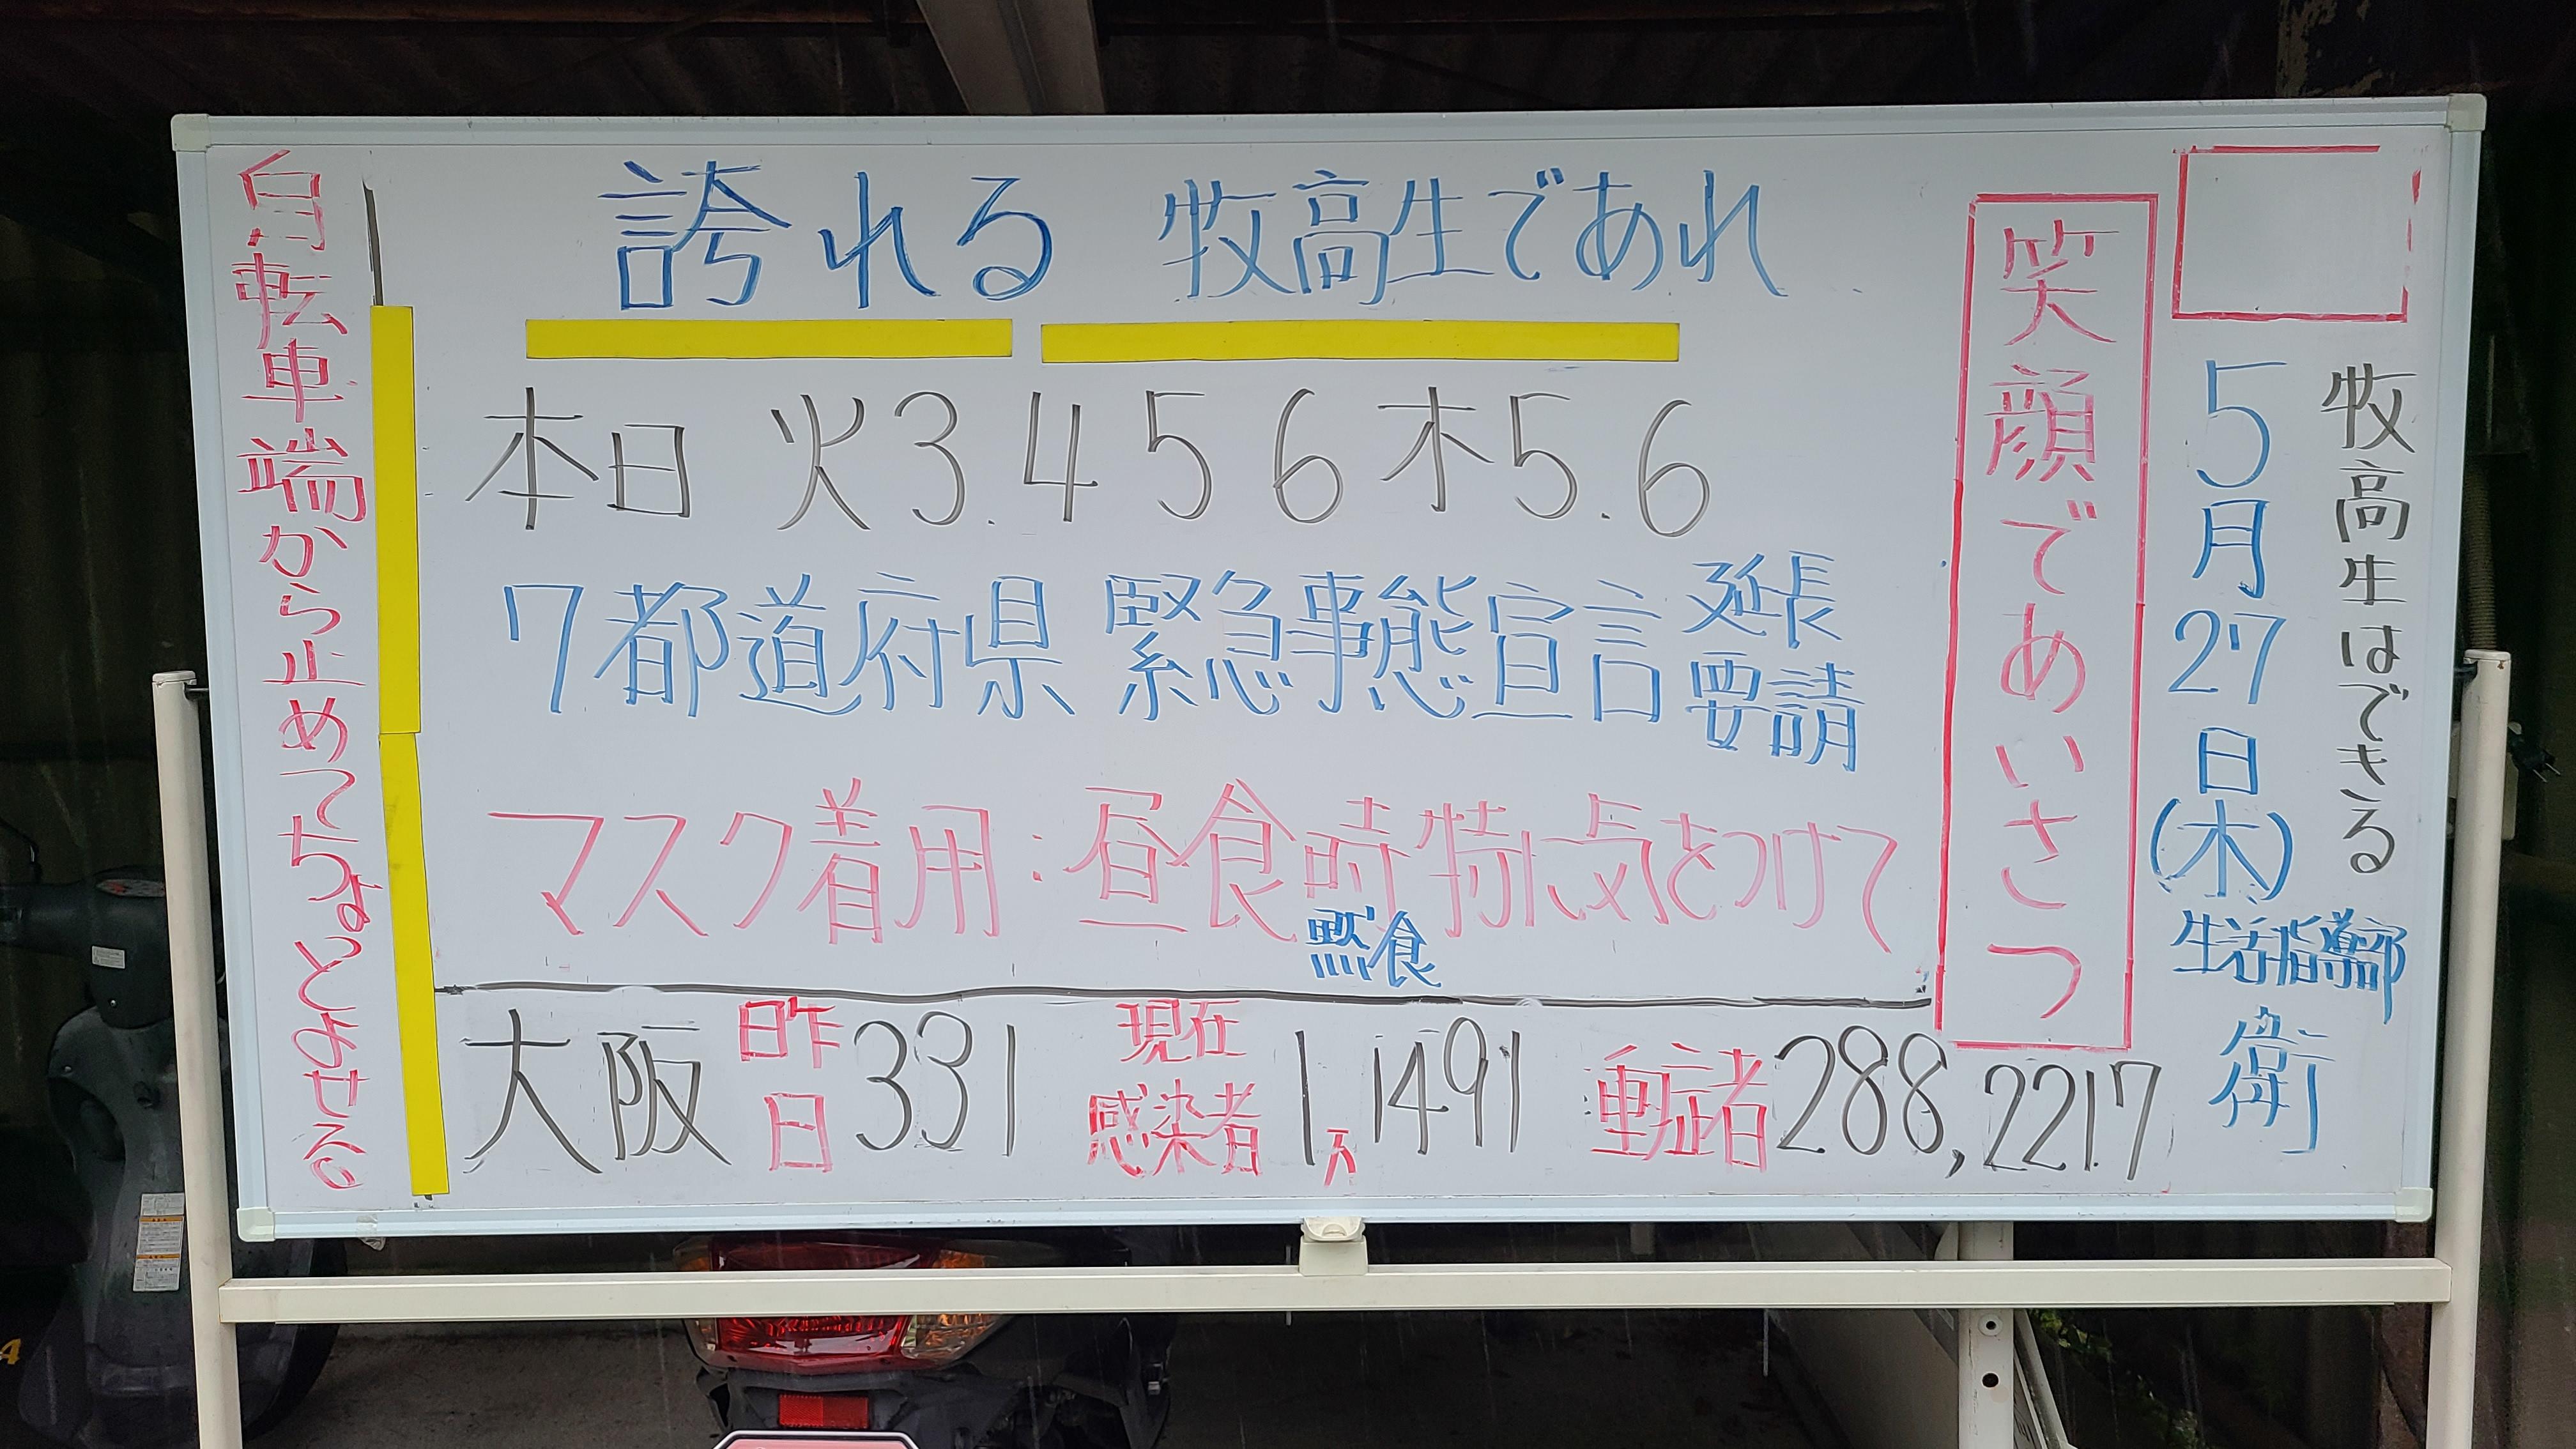 牧高生はできる
5月27日(木)
生活指導部
衛
笑顔であいさつ
誇れる 牧高生であれ
本日 火3.4 5 6 木5.6
7都道府県 緊急事態宣言 延長要請
マスク着用:昼食時特に気をつけて
黙食
大阪 昨日331 現在感染者1万1491 重症者288,221.7
自転車端から止めてちょとよせる